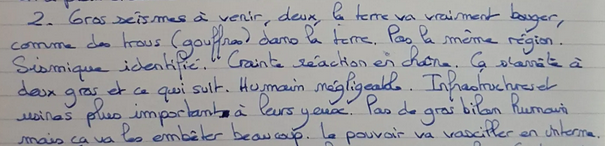 2. Gros séismes à venir, deux, la terre va vraiment bouger,
comme des trous (gouffres) dans la terre. Pas la même région.
Sismique identifié. Crainte réaction en chaîne. Ça s'arrête à
deux gros et ce qui suit. Humain négligeable. Infrastructures et
usines plus important à leurs yeux. Pas de gros bilan humain
mais ça va les embêter beaucoup. Le pouvoir va vaciller en interne.